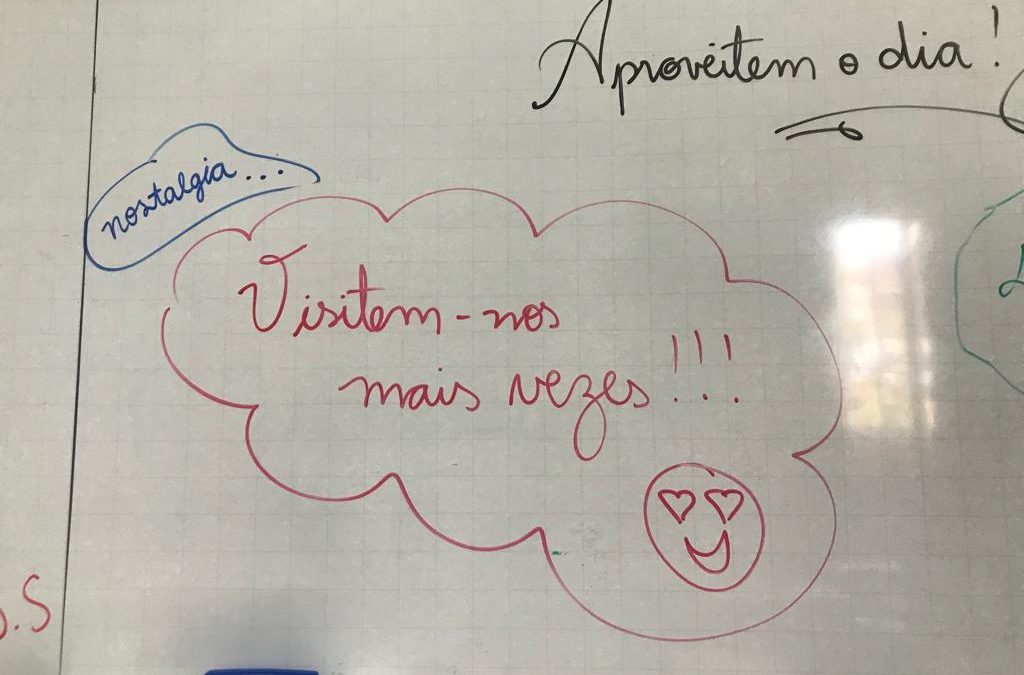 Aproveitem o dia!
nostalgia...
Visitem-nos
mais vezes!!!